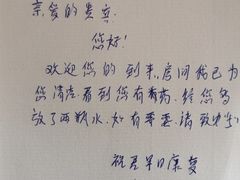 亲爱的贵宾.
您好!
欢迎您的到来,房间我已为
您清洁看到您有吃药,给您多
放了两瓶水.如有需要请致电
祝君早日康复